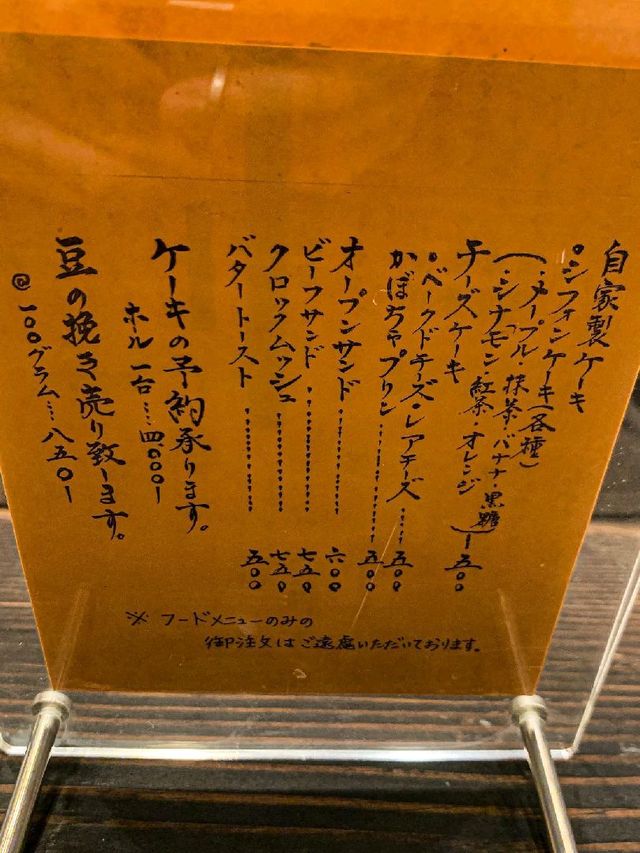 自家製ケーキ
○シフォンケーキ(各種)
(・メープル・抹茶・バナナ・黒糖
・シナモン・紅茶・オレンジ)ー五〇〇
チーズケーキ
・ベークドチーズ・レアチーズ……五〇〇
かぼちゃプリン……五〇〇
オープンサンド……六〇〇
ビーフサンド……七五〇
クロックムッシュ……七五〇
バタートースト……五〇〇
ケーキの予約承ります。
ホール一台……四〇〇〇ー
豆の挽き売り致します。
@一〇〇グラム…八五〇ー
※フードメニューのみの
御注文はご遠慮いただいております。